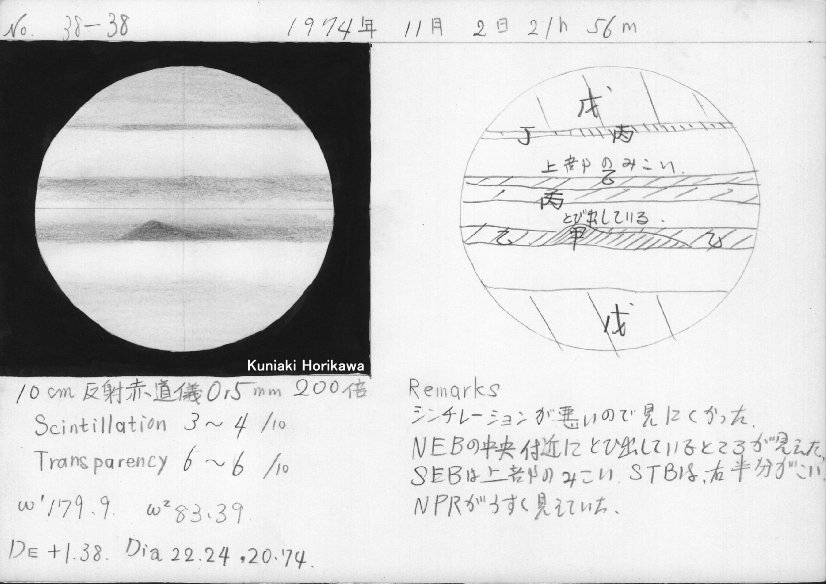 No. 38-38 1974年 11月 2日 21h 56m
戊
丁 丙
上部のみこい.
乙
丙
とび出している.
乙 甲 乙
戊
Kuniaki Horikawa
10cm反射赤道儀 Or5mm 200倍
Scintillation 3~4/10
Transparency 6~6/10
ω¹179.9. ω²83.39.
DE +1.38. Dia 22.24,20.74.
Remarks
シンチレーションが悪いので見にくかった.
NEBの中央付近にとび出しているところが見えた.
SEBは上部のみこい. STBは、右半分がこい.
NPRがうすく見えていた.